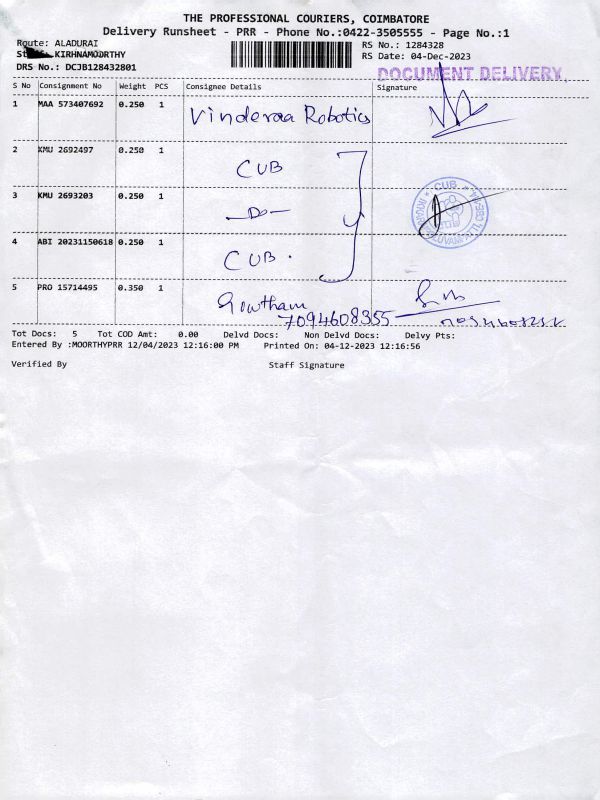 THE PROFESSIONAL COURIERS, COIMBATORE
Delivery Runsheet - PRR - Phone No.:0422-3505555 - Page No.:1
Route: ALADURAI
KIRHNAMOORTHY
DRS No.: DCJB128432801
RS No.: 1284328
RS Date: 04-Dec-2023
DOCUMENT DELIVERY
S No Consignment No Weight PCS Consignee Details Signature
1 MAA 573407692 0.250 1 Vinderaa Robotics
2 KMU 2692497 0.250 1 CUB
3 KMU 2693203 0.250 1 -Do-
CUB
4 ABI 20231150618 0.250 1 CUB.
5 PRO 15714495 0.350 1 Gowtham
7094608355
Tot Docs: 5 Tot COD Amt: 0.00 Delvd Docs: Non Delvd Docs: Delvy Pts:
Entered By :MOORTHYPRR 12/04/2023 12:16:00 PM Printed On: 04-12-2023 12:16:56
Verified By Staff Signature